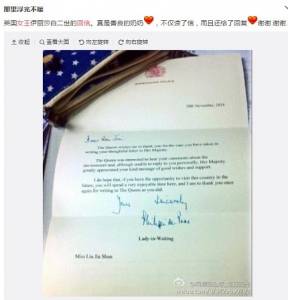 那里浮光不暖
英国女王伊丽莎白二世的回信。真是善良的奶奶❤，不仅读了信，而且还给了回复❤谢谢 谢谢
收起 查看大图 向左旋转 向右旋转
20th November, 2014
Dear Miss Liu
The Queen wishes me to thank you for the care you have taken in
writing your thoughtful letter to Her Majesty.
The Queen was interested to hear your comments about the
and, although unable to reply to you personally, Her Majesty
greatly appreciated your kind message of good wishes and support.
I do hope that, if you have the opportunity to visit this country in the
future, you will spend a very enjoyable time here, and I am to thank you once
again for writing to The Queen as you did.
Yours Sincerely
Lady-in-Waiting
Miss Liu Jia Shan